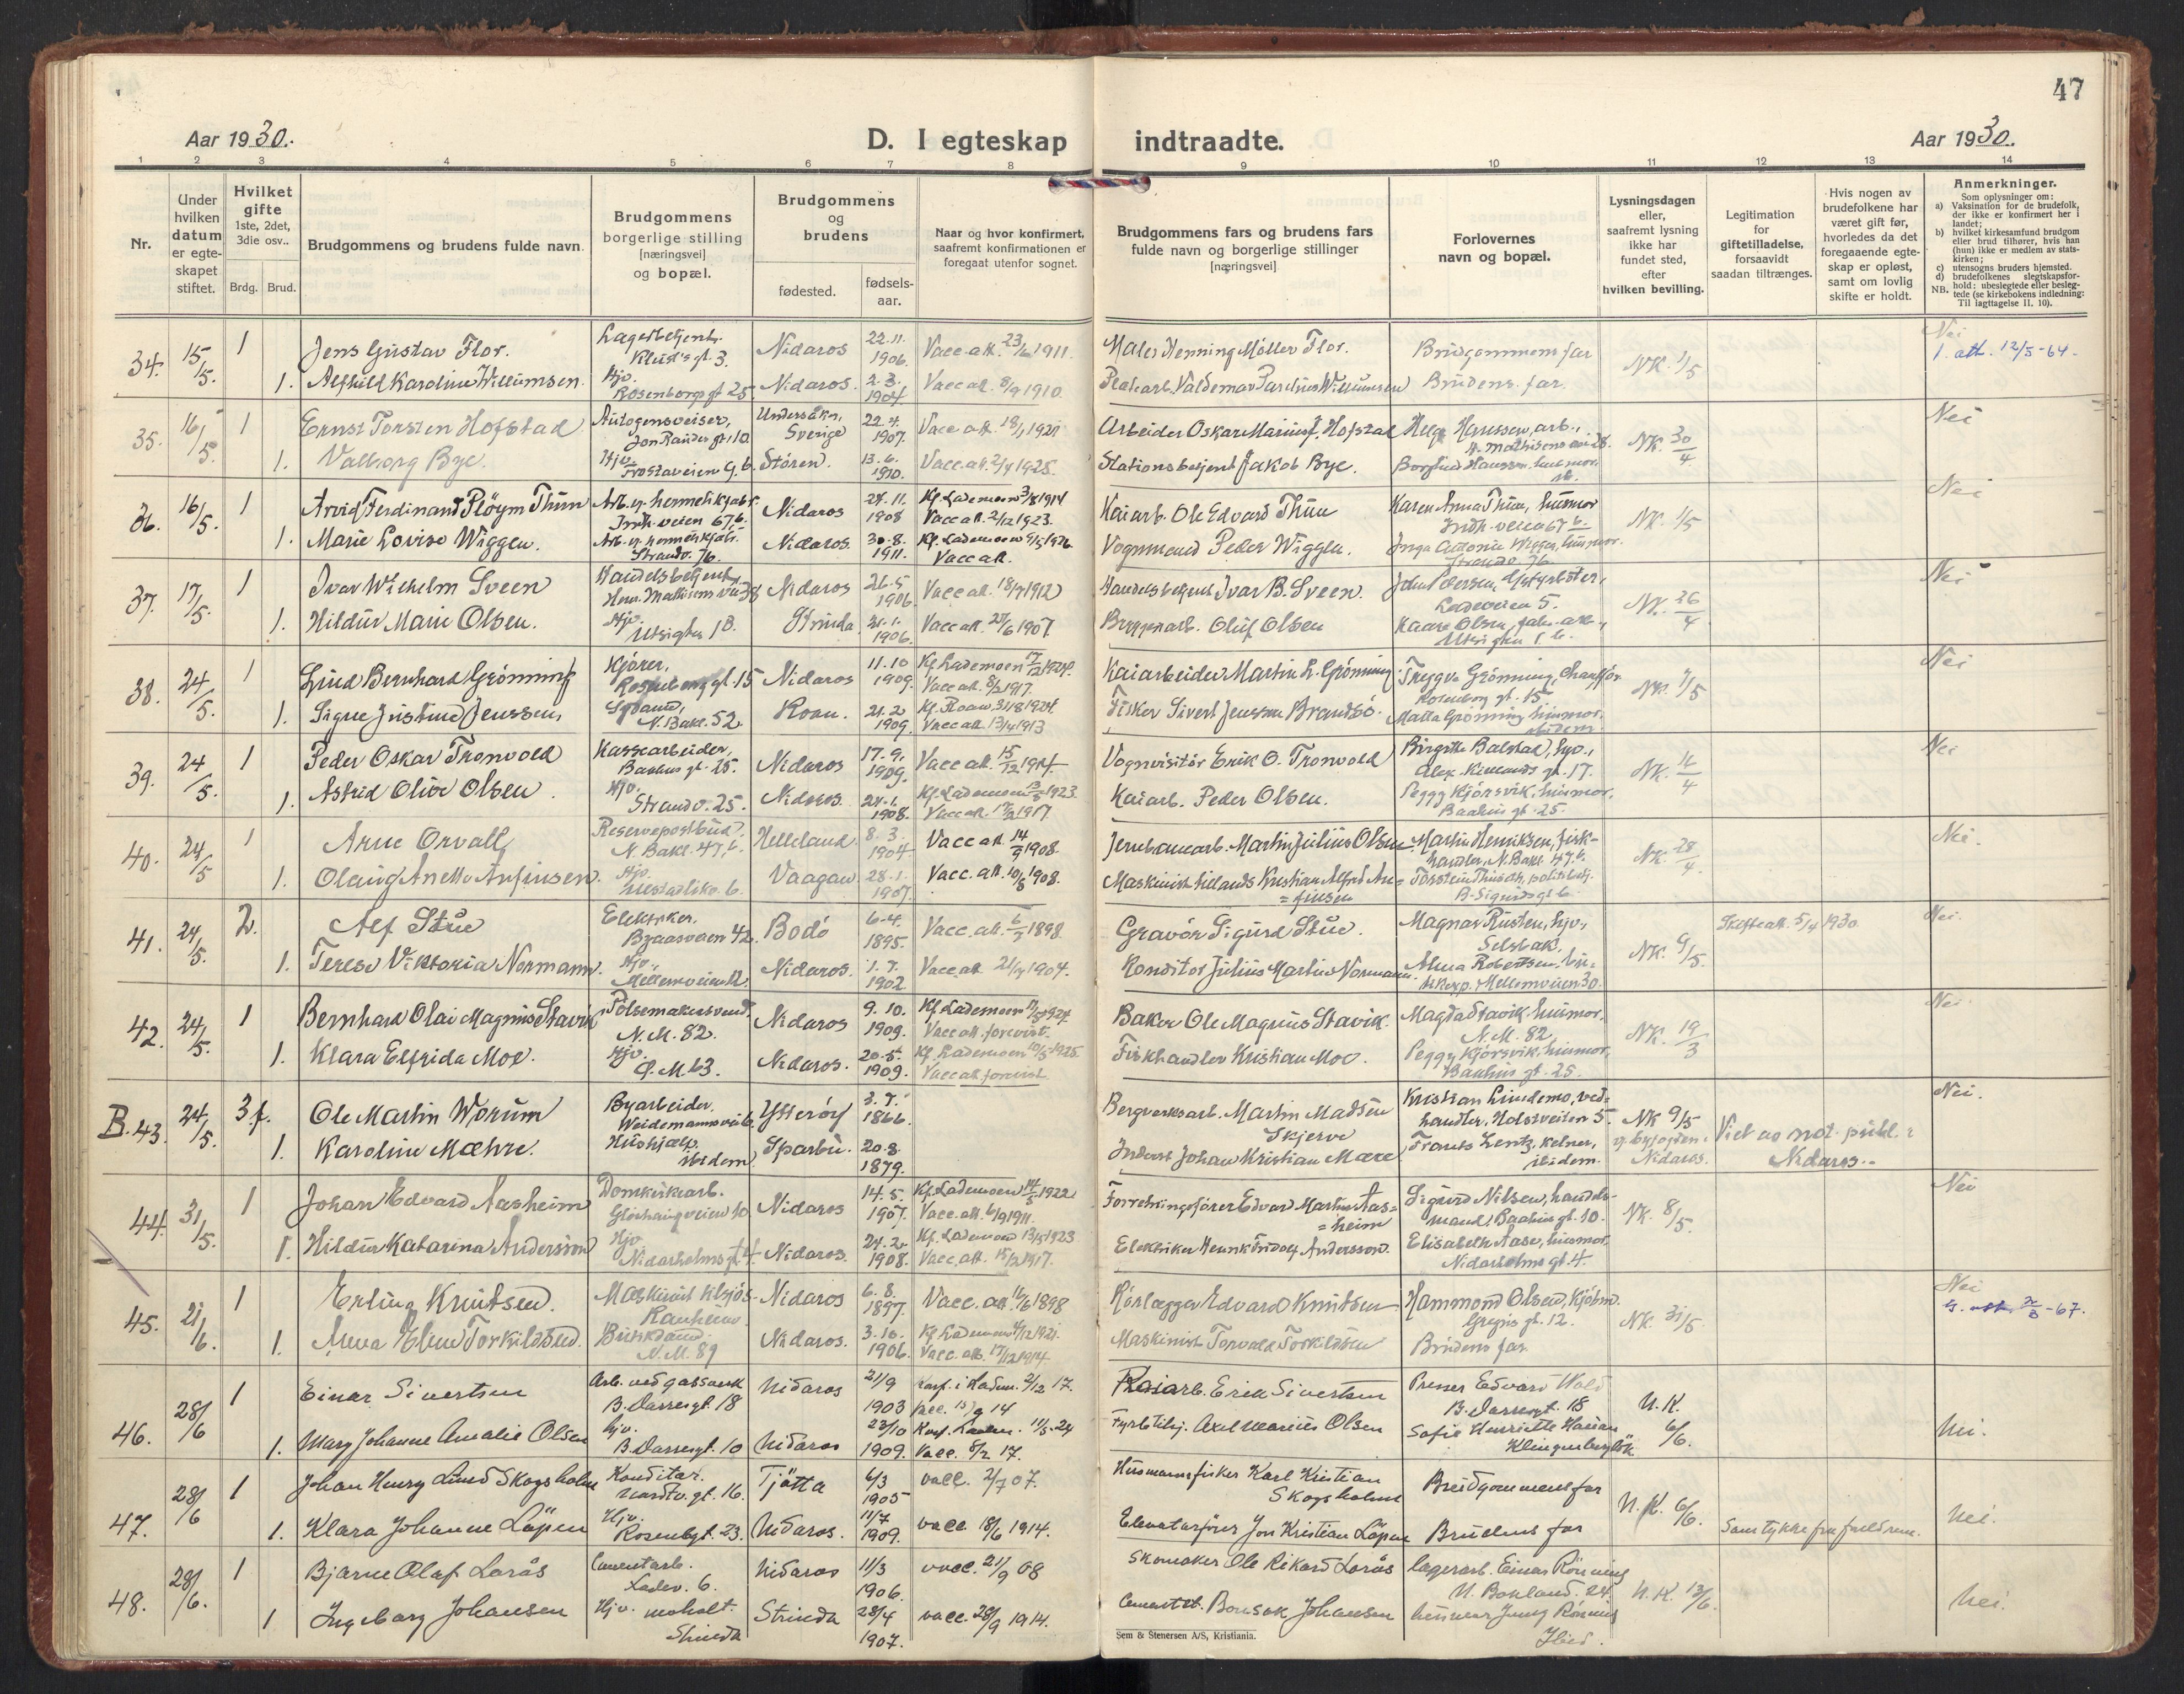 47
Aar 1930.
D. I egteskap indtraadte.
Aar 1930.
1 2 3 4 5 6 7 8 9 10 11 12 13 14
Nr.
Under hvilken datum er egteskapet stiftet.
Hvilket gifte 1ste, 2det, 3die osv..
Brdg. Brud.
Brudgommens og brudens fulde navn.
Brudgommens borgerlige stilling [næringsvei] og bopæl.
Brudgommens og brudens
fødested.
fødsels-aar.
Naar og hvor konfirmert, saafremt konfirmationen er foregaat utenfor sognet.
Brudgommens fars og brudens fars fulde navn og borgerlige stillinger [næringsvei]
Forlovernes navn og bopæl.
Lysningsdagen eller, saafremt lysning ikke har fundet sted, efter hvilken bevilling.
Legitimation for giftetilladelse, forsaavidt saadan tiltrænges.
Hvis nogen av brudefolkene har været gift før, hvorledes da det foregaaende egteskap er opløst, samt om lovlig skifte er holdt.
Anmerkninger.
Som oplysninger om:
a) Vaksination for de brudefolk, der ikke er konfirmert her i landet;
b) hvilket kirkesamfund brudgom eller brud tilhører, hvis han (hun) ikke er medlem av statskirken;
c) utensogns bruders hjemsted.
d) brudefolkenes slegtskapsforhold: ubeslegtede eller beslegtede (se kirkebokens indledning:
NB. Til iagttagelse II, 10).
34. 15/5. 1 Jens Gustav Flor. Lagerbetjent. gt. 3. Nidaros 22.11. 1906. Vacc. att. 23/6 1911. Maler Henning Møller Flor. Brudgommens far NK. 1/5 Nei
1. att. 12/5-64.
1. Alfhild Karoline Willumsen. Hjv. Rosenborg gt 25. Nidaros. 2.3. 1904 Vacc att. 8/9 1910. Valdemar Willumsen Brudens far.
35. 16/5. 1 Ernst Torsten Hofstad Autogensveiser, gt. 10. Undersåker, Sverige 22.4. 1907. Vacc att. 18/1 1921 Arbeider Oskar Marius Hofstad Helge Hanssen, arb., NK. 30/4 Nei
1. Valborg Bye. Hjv. Frostaveien 9.b. Støren. 13.6. 1910. Vacc. att. 1925. Stationsbetjent Jakob Bye. Borghild Hanssen husmor. ib.
36. 16/5. 1 Arvid Ferdinand Pløym Thun Arb. v. hermetikfabr. Innh. veien 67,b. Nidaros 27.11. 1908 Kf. Lademoen 1914 Vacc att. 2/12 1923. Kaiarb. Ole Edvard Thun Karen Anna Thun, husmor Indh. veien 67 b. NK. 1/5 Nei
1. Marie Lovise Wiggen. Arb. v. hermetikfabr. Strandv. 76. Nidaros. 30.8. 1911. Kf. Lademoen 9/5 1926 Vacc att. Vognmand Peder Wiggen. Inga Antonie Wiggen, husmor. Strandv. 76.
37. 17/5. 1 Ivar Wilhelm Sveen Handelsbetjent, Nidaros 26.5. 1906. Vacc att. 18/7 1912 Handelsbetjent Ivar B. Sveen. John Pedersen, Ladeveien 5. NK. 26/4 Nei
1. Hildur Marie Olsen. Hjv. Utsigten 1 B. Strinda 31.1. 1906. Vacc att. 27/6 1907 Bryggearb. Oluf Olsen Kaare Olsen, fabr. arb., Utsigten 1 b.
38. 24/5. 1 Lind Bernhard Grønning Kjører, Rosenborg gt. 15 Nidaros 11.10 1909. Kf. Lademoen 1924. Vacc att. 8/2 1917. Kaiarbeider Martin L. Grønning Tryggve Grønning, chauffør Rosenborg gt. 15 NK. 7/5 Nei
1. Signe Justine Jenssen, N. Bakl. 52 Roan. 21.2 1909. Kf. Roan 31/8 1924. Vacc att. 13/4 1913 Fisker Sivert Jenssen Brandsø. Grønning husmor. ibidem
39. 24/5. 1 Peder Oskar Tronvold Kassearbeider, Baahus gt. 25. Nidaros 17.9. 1909. Vacc att. 15/12 1914. Vognvisitør Erik O. Tronvold Birgitte Balstad, hjv., Alex. Kiellands gt. 17. NK. 16/4 Nei
1. Astrid Olive Olsen. Hjv. Strandv. 25. Nidaros. 24.1. 1908. Kf. Lademoen 1923. Vacc att. 1917. Kaiarb. Peder Olsen. Peggy Kjørsvik, husmor, Baahus gt. 25.
40. 24/5 1 Arne Orvall Reservepostbud, N. Bakl. 47,b. Helleland. 8.3. 1904 Vacc att. 14/9 1908. Jernbanearb. Martin Julius Olsen. Martin Henriksen, fiskhandler, N. Bakl. 47.b. NK. 28/4. Nei.
1. Olaug Anette Anfinsen. Hjv. Vaagan 28.1. 1907. Vacc. att. 10/8 1908. Maskinist Kristian Alfred Anfinsen Torstein politibetj. B. Sigurds gt. 6.
41. 24/5. 2. Alf Stüe Elektriker. Byaasveien 42. Bodø 6.4. 1895. Vacc. att. 6/7 1898. Gravør Sigurd Stüe. Magnar Rusten, hjv., Selsbak. NK. 9/5. Skifteatt. 5/4 1930 Nei.
1. Terese Viktoria Normann. Hjv., Mellemveien 12. Nidaros. 1.7. 1902. Vacc att. 21/9 1904. Konditor Julius Martin Normann. Alma Robertsen, Mellemveien 30.
42. 24/5. 1 Bernhard Olai Magnus Stavik Pølsemakersvend. N. M. 82. Nidaros 9.10. 1909. Kf. Lademoen 1924. Vacc att. forevist. Baker Ole Magnus Stavik. Magda Stavik husmor. N. M. 82 NK. 19/3 Nei.
1. Klara Elfrida Moe. Hjv. Ø. M. 63. Nidaros. 20.5. 1909. Kf. Lademoen 10/5 1925. Vacc att. forevist Fiskhandler Kristian Moe. Peggy Kjørsvik, husmor, Baahus gt. 25.
B. 43. 24/5. 3 f. Ole Martin Worum Byarbeider. Weidemannsvei Ytterøy 3.7. 1866. Bergverksarb. Martin Madsen Skjerve Kristian Lindemo, vedhandler, Holstveiten 5. NK 9/5 g. byfogden i Nidaros. Viet av not. publ. i Nidaros. Nei.
1. Karoline Mæhre. Hushjælp. ibidem Sparbu. 20.8. 1879. Inderst Johan Kristian Mære Frants Lentz, kelner, ibidem.
44. 31/5. 1 Johan Edvard Aasheim Domkirkearb. Gløshaugveien 10 Nidaros 14.5. 1907. Kf. Lademoen 14/5 1922. Vacc. att. 6/9 1911. Forretningsfører Edvard Martin Aasheim Sigurd Nilsen, handelsmand, Baahus gt. 10. NK. 8/5. Nei
1. Hildur Katarina Andersson Hjv. Nidarholms gt 4 Nidaros. 24.2. 1908. Kf. Lademoen 13/5 1923 Vacc. att. 15/12 1917. Elektriker Henrik Fridolf Andersson. Elisabeth Aase, husmor, Nidarholms gt. 4.
45. 21/6. 1 Erling Knutsen. Maskinist Ranheim. Nidaros 6.8. 1897. Vacc. att. 16/6 1898 Rørlægger Edvard Knutsen Hammond Olsen, kjøbm. Gregus gt. 12. NK. 31/5 Nei
G. att. 2/3-67.
1. Anna Eline Torkildsen. N. M. 89 Nidaros. 3.10. 1906. Kf. Lademoen 4/12 1921. Vacc. att. 17/12 1914 Maskinist Torvald Torkildsen Brudens far.
46. 28/6 1 Einar Sivertsen Arb. ved gassverk B. Dassesgt. 18 Nidaros 21/9 1903 Konf. i Ladem. 2/12 17. Vacc. 15/9 14 Kaiarb. Erik Sivertsen Presser Edvard Wold B. Dassesgt. 18 N.K. 6/6. Nei.
1. Mary Johanne Amalie Olsen hjv. B. Dassesgt. 10 Nidaros 23/10 1909. Konf. Ladem. 11/5-24 Vacc. 8/2 17. Fyrbt. Axel Marius Olsen Sofie Henriette Hansen
47. 28/6 1 Johan Henry Lund Skogsholm Konditor. Nardov. gt. 16. Tjøtta 6/3 1905 vacc. 2/7 07. Husmann fisker Karl Kristian Skogsholm Brudgommens far N.K. 6/6. Samtykke fra foreldrene. Nei.
1. Klara Johanne Løpen Hjv. Rosenbgt. 23. Nidaros. 11/7 1909. vacc 18/6 1914. Elevatorfører Jon Kristian Løpen Brudens far
48. 28/6. 1 Bjarne Olaf Larås Cementarb. Ladev. 6. Nidaros 11/3 1906. vacc. 21/9 08 Skomaker Ole Rikard Larås lagerarb. Einar Rönning N. Bakland. 24. N.K. 13/6. Nei.
1 Ingeborg Johansen Hjv. Moholt. Strinda Strinda 28/4 1907. vacc. 28/9 1914. Cementst. Bonsak Johansen husmor Jenny Rönning Ibid.
Sem & Stenersen A/S, Kristiania.